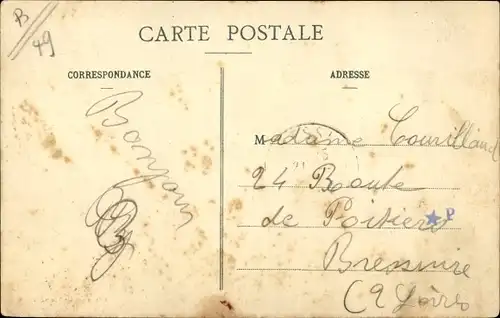 B
49
CARTE POSTALE
CORRESPONDANCE
ADRESSE
Bonjour
Madame Courilland
24 Route
de Poitiers
P
Bressuire
(2 Sèvres